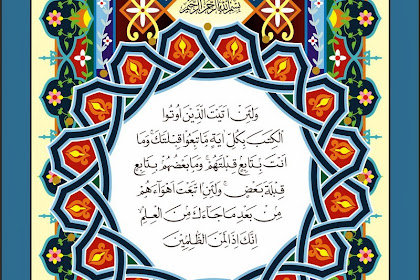 بسم الله الرحمن الرحيم
وَلَئِنْ اَتَيْتَ الَّذِيْنَ اُوتُوا
الْكِتٰبَ بِكُلِّ اٰيَةٍ مَّا تَبِعُوْا قِبْلَتَكَ ۚ وَمَآ
اَنْتَ بِتَابِعٍ قِبْلَتَهُمْ ۚ وَمَا بَعْضُهُمْ بِتَابِعٍ
قِبْلَةَ بَعْضٍ ۗ وَلَئِنِ اتَّبَعْتَ اَهْوَآءَهُمْ
مِّنْۢ بَعْدِ مَا جَآءَكَ مِنَ الْعِلْمِ ۙ
اِنَّكَ اِذًا لَّمِنَ الظّٰلِمِيْنَ